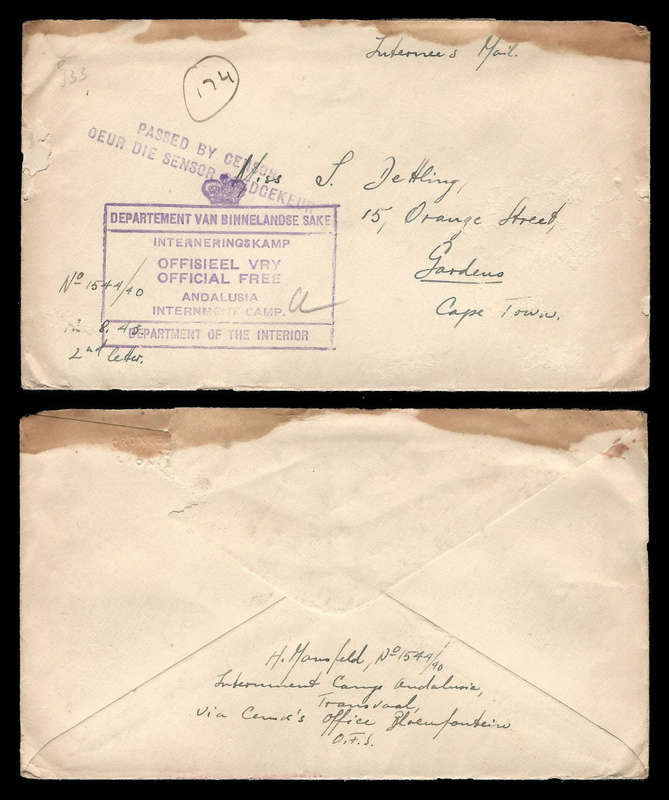 Internee's Mail.
174
PASSED BY CENSOR
DEUR DIE SENSOR GOEDGEKEUR
Miss S. Dettling,
15, Orange Street,
Gardens
Cape Town.
DEPARTEMENT VAN BINNELANDSE SAKE
INTERNERINGSKAMP
OFFISIEEL VRY
OFFICIAL FREE
ANDALUSIA
INTERNMENT CAMP.
DEPARTMENT OF THE INTERIOR
No 1544/40
8. 45.
2nd letter.
H. Mansfeld, No 1544/40
Internment Camp Andalusia,
Transvaal,
via Censor's Office Bloemfontein
O.F.S.